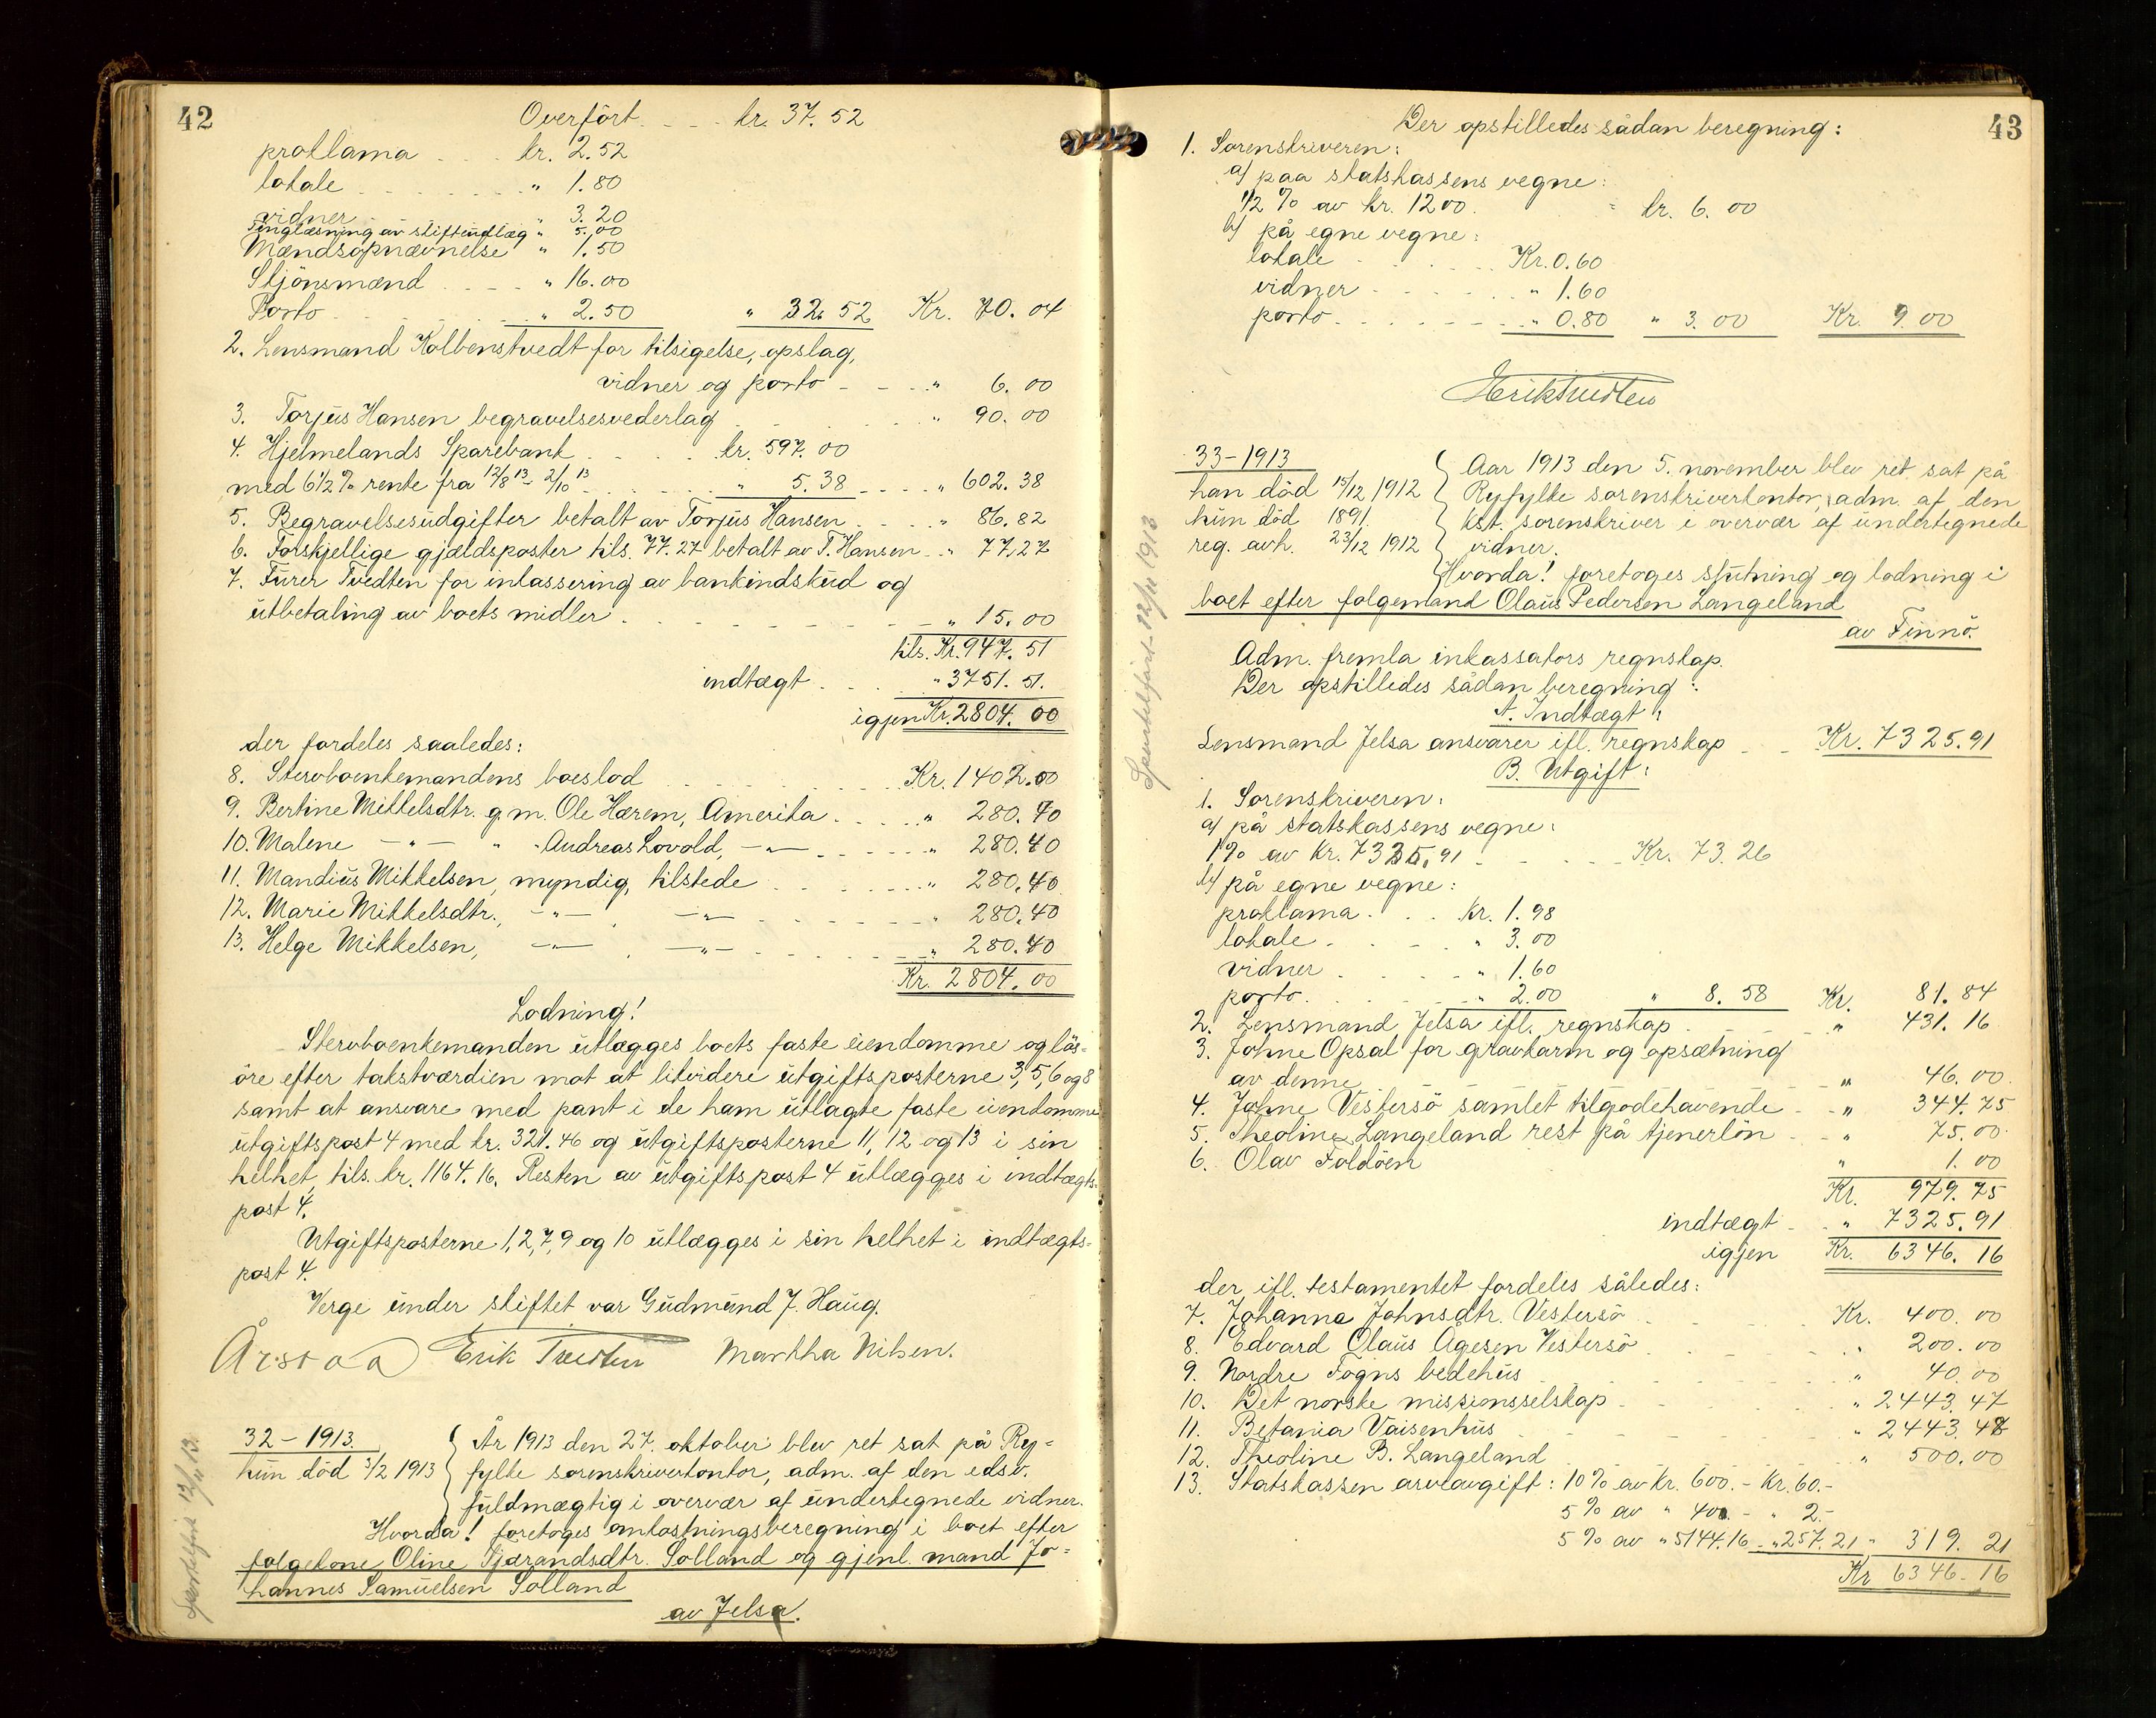 42
Overført . . . kr. 37.52
proklama . . . kr. 2.52
lokale . . . " 1.80
vidner " 3.20
Tinglæsning av skifteudlæg " 5.00
Mændsopnævnelse " 1.50
Skjönsmænd . . . " 16.00
Porto . . . " 2.50 " 32.52 Kr. 70.04
2. Lensmand Kolbenstvedt for tilsigelse, opslag,
vidner og porto - - " 6.00
3. Torjus Hansen begravelsesvederlag . . . " 90.00
4. Hjelmelands Sparebank . . . kr. 597.00
med 6 1/2 % rente fra 12/8 13 - 2/10 13 . . . " 5.38 . . . " 602.38
5. Begravelsesudgifter betalt av Torjus Hansen . . . " 86.82
6. Forskjellige gjældsposter tils. 77.27 betalt av T. Hansen . . " 77.27
7. Furer Tvedten for inkassering av bankindskud og
utbetaling av boets midler . . . " 15.00
tils. Kr. 947.51
indtægt . . . " 3751.51.
igjen Kr. 2804.00
der fordeles saaledes:
8. Stervboenkemandens boeslod . . . Kr. 1402.00
9. Bertine Mikkelsdtr. g.m. Ole Hærem, Amerika . . . " 280.40
10. Malene - " - " - Andreas Lovold, - " - . . . " 280.40
11. Mandius Mikkelsen, myndig, tilstede . . . " 280.40
12. Marie Mikkelsdtr., - " - - " - . . . " 280.40
13. Helge Mikkelsen, - " - - " - . . . " 280.40
Kr. 2804.00
Lodning!
Stervboenkemanden utlægges boets faste eiendomme og løs-
öre efter takstværdien mot at likvidere utgiftsposterne 3, 5, 6 og 8
samt at ansvare med pant i de ham utlagte faste eiendomme
utgiftspost 4 med kr. 321.46 og utgiftsposterne 11, 12 og 13 i sin
helhet, tils. kr. 1164.16. Resten av utgiftspost 4 utlægges i indtægts-
post 4.
Utgiftsposterne 1, 2, 7, 9 og 10 utlægges i sin helhet i indtægts-
post 4.
Verge under skiftet var Gudmund J. Haug.
Årstaa Erik Tvedten Martha Nilsen.
32 - 1913.
hun död 3/2 1913
År 1913 den 27. oktober blev ret sat på Ry-
fylke sorenskriverkontor, adm. af den edsv.
fuldmægtig i overvær af undertegnede vidner.
Hvorda! foretoges omkostningsberegning i boet efter
folgekone Oline Tjærandsdtr. Solland og gjenl. mand Jo-
hannes Samuelsen Solland
av Jelsa.
43
Der opstilledes sådan beregning:
1. Sorenskriveren:
a) paa statskassens vegne:
1/2 % av kr. 1200. kr. 6.00
b) på egne vegne:
lokale . . . Kr. 0.60
vidner . . . " 1.60
porto . . . " 0.80 " 3.00 Kr. 9.00
Erik Tvedten
33 - 1913
han död 15/12 1912
hun död 1891.
reg. avh. 23/12 1912
Aar 1913 den 5. november blev ret sat på
Ryfylke sorenskriverkontor, adm. af den
kst. sorenskriver i overvær af undertegnede
vidner.
Hvorda! foretoges slutning og lodning i
boet efter folgemand Olaus Pedersen Langeland
av Finnö.
Adm. fremla inkassators regnskap.
Der opstilledes sådan beregning:
A. Indtægt:
Lensmand Jelsa ansvarer ifl. regnskap . . . Kr. 7325.91
B. Utgift:
1. Sorenskriveren:
a) på statskassens vegne:
1% av kr. 7325.91 . . . Kr. 73.26
b) på egne vegne:
proklama . . . Kr. 1.98
lokale . . . " 3.00
vidner . . . " 1.60
porto . . . " 2.00 " 8.58 Kr. 81.84
2. Lensmand Jelsa ifl. regnskap . . . " 431.16
3. Johne Opsal for gravkarm og opsætning
av denne . . . " 46.00.
4. Johne Vestersö samlet tilgodehavende . . " 344.75
5. Theoline Langeland rest på tjenerlön . . " 75.00
6. Olav Foldöen " 1.00
Kr. 979.75
indtægt . . " 7325.91
igjen Kr. 6346.16
der ifl. testamentet fordeles således:
7. Johanna Johnsdtr. Vestersö . . . Kr. 400.00
8. Edvard Olaus Ågesen Vestersö . . . " 200.00
9. Nordre Fogns bedehus . . . " 40.00
10. Det norske missionsselskap . . . " 2443.47
11. Betania Vaisenhus . . . " 2443.48
12. Theoline B. Langeland . . . " 500.00
13. Statskassen arveavgift: 10% av kr. 600.- Kr. 60.-
5% av " 40.- " 2.-
5% av " 5144.16 - " 257.21 " 319.21
Kr 6346.16